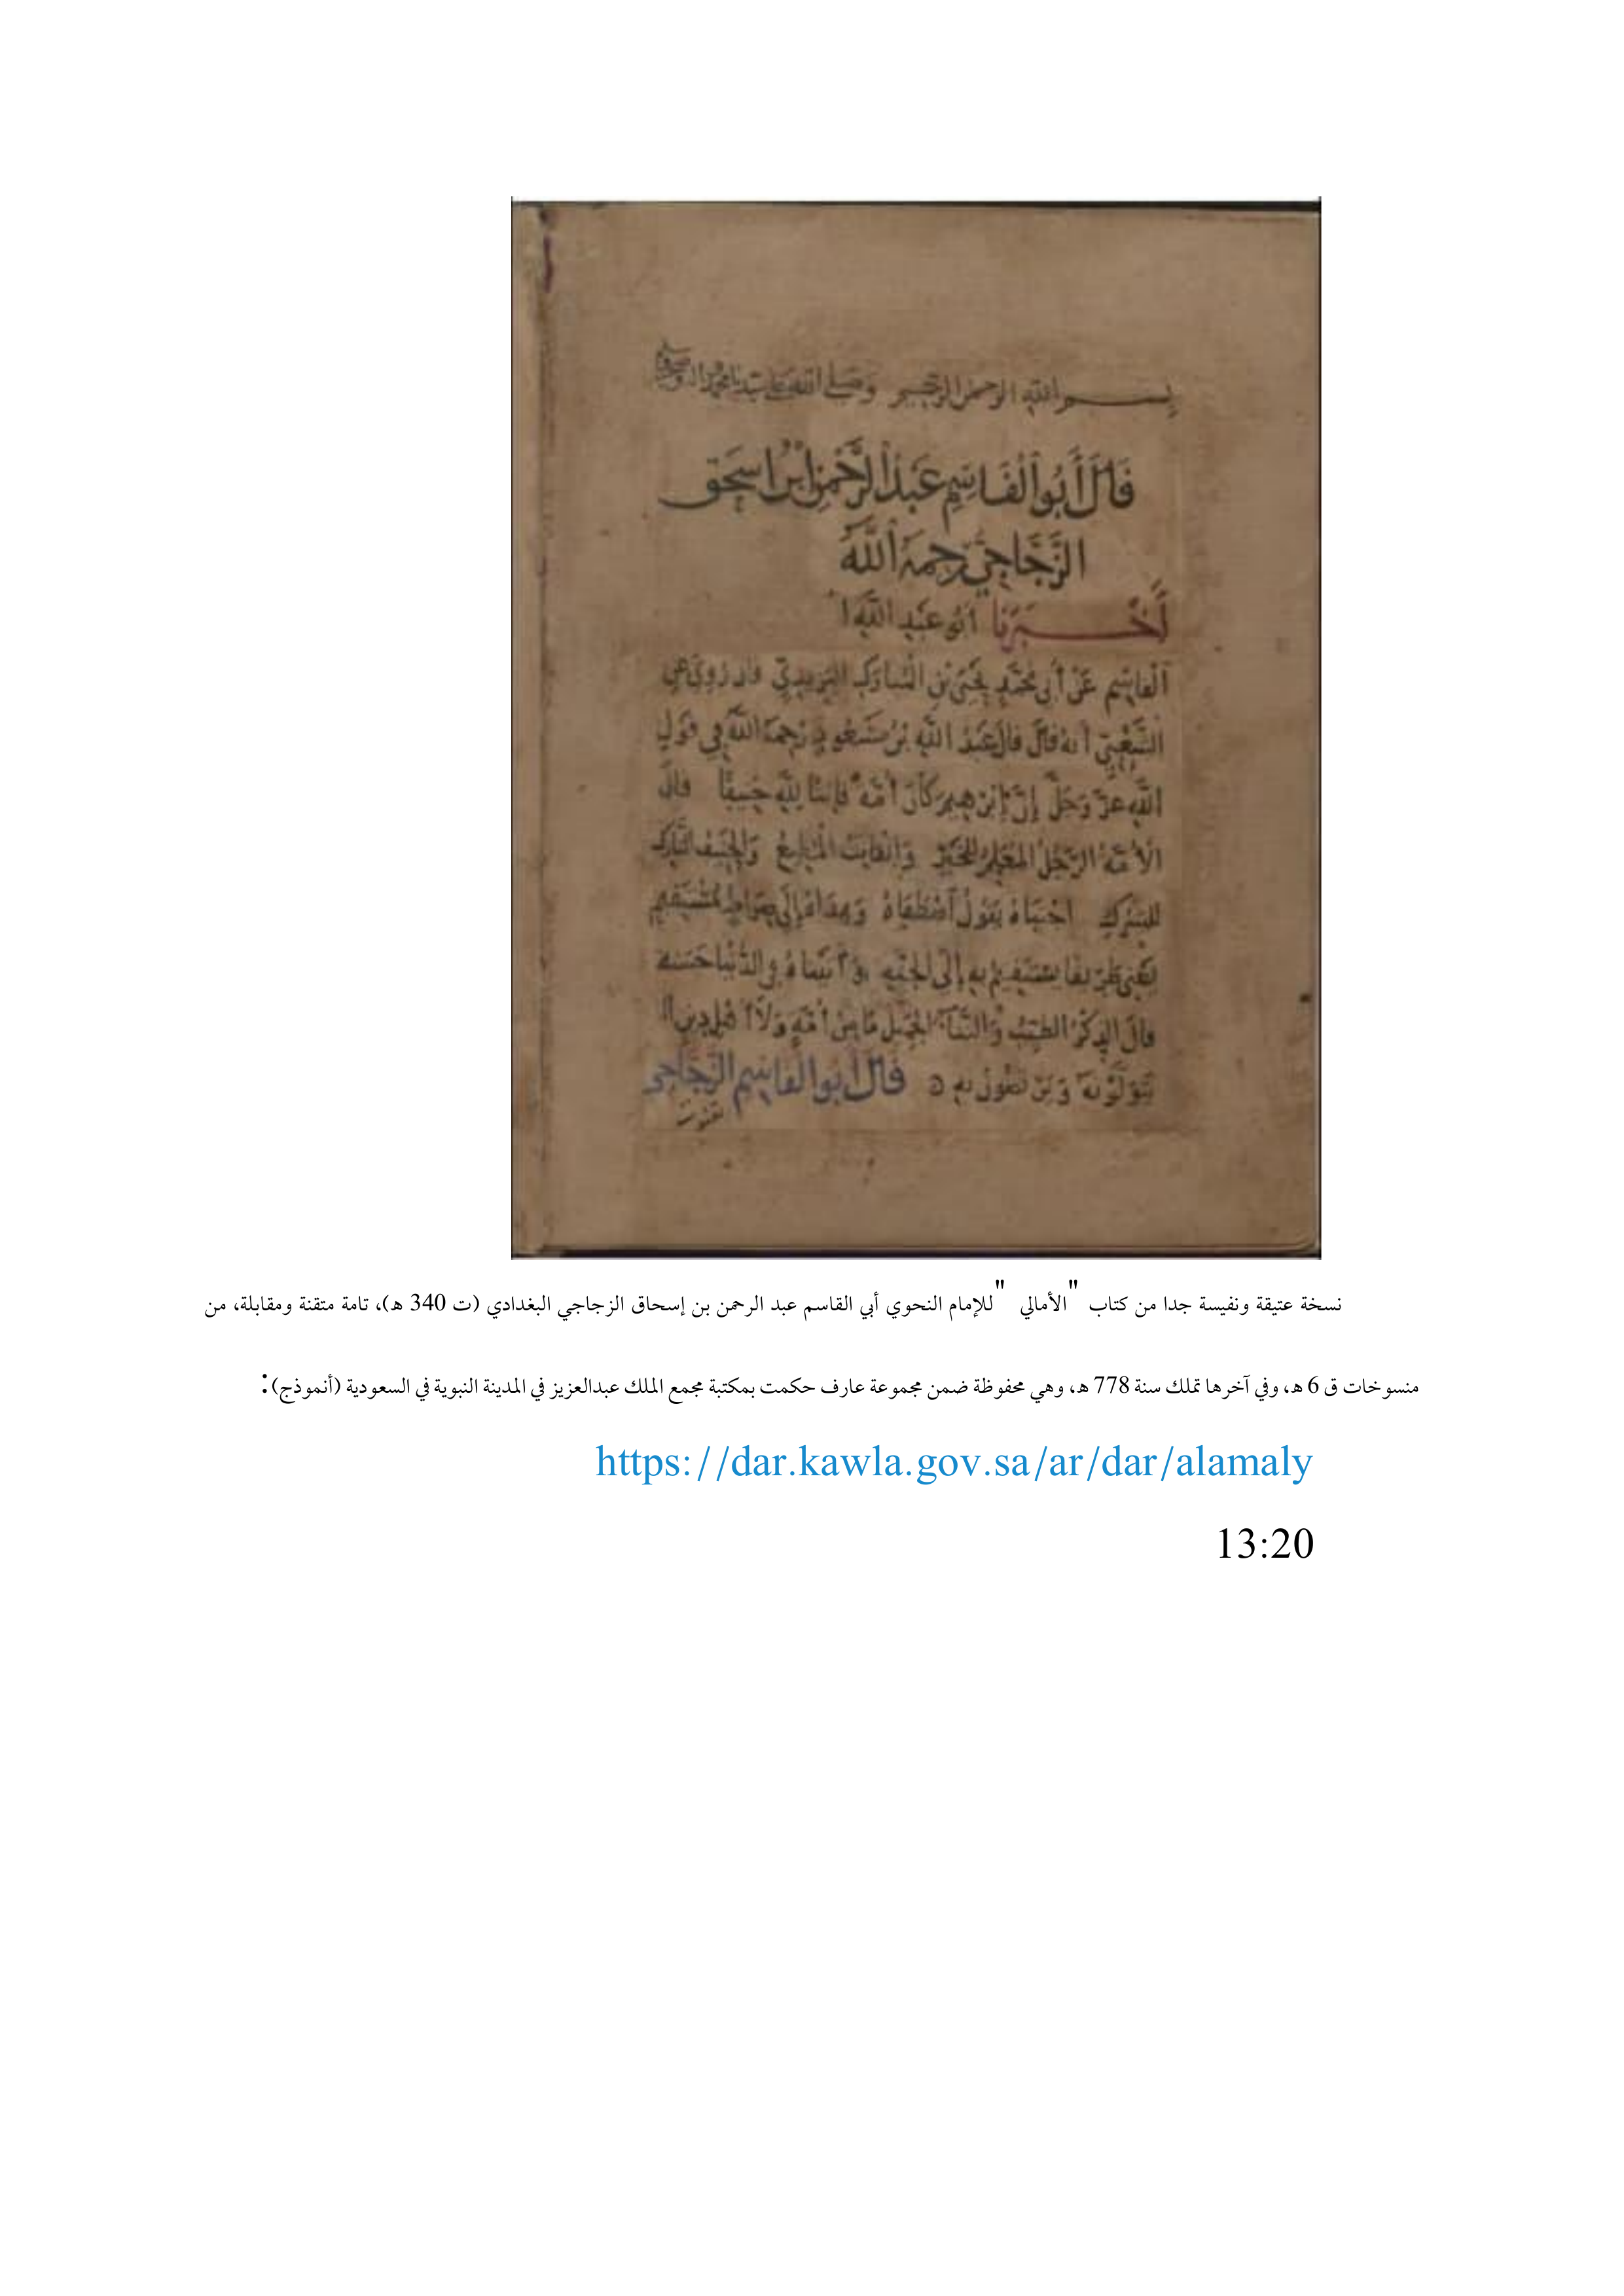 بسم الله الرحمن الرحيم وصلى الله على سيدنا محمد
قَالَ أَبُو الْقَاسِمِ عَبْدُ الرَّحْمٰنِ ابْنُ اسحق
الزَّجَّاجِيُّ رَحِمَهُ اللَّهُ
أَخْبَرَنَا أبو عبد الله
القاسم عَنْ أَبِي مُحَمَّدٍ يَحْيَى بْنِ الْمُبَارَكِ اليزيدي قال رُوِيَ عن
الشَّعْبِيّ أنه قَالَ قال عَبْدُ اللَّهِ بْنُ مَسْعُودٍ رَحِمَهُ اللَّهُ فِي قَوْلِ
اللَّهِ عَزَّ وَجَلَّ إِنَّ إبرهيم كَانَ أُمَّةً قَانِتًا لِلَّهِ حَنِيفًا قال
الْأُمَّةُ الرَّجُلُ الْمُعَلِّمُ لِلْخَيْرِ وَالْقَانِتُ الْمُطِيعُ وَالْحَنِيفُ التَّارِكُ
لِلشِّرْكِ اجْتَبَاهُ يَقُولُ اصْطَفَاهُ وَهَدَاهُ إِلَى صِرَاطٍ مُسْتَقِيمٍ
يَعْنِي طَرِيقًا يَسْتَقِيمُ بِهِ إِلَى الْجَنَّةِ وَآتَيْنَاهُ فِي الدُّنْيَا حَسَنَةً
قَالَ الذِّكْرُ الطَّيِّبُ وَالثَّنَاءُ الْجَمِيلُ مَا مِنْ أُمَّةٍ وَلَا أهل دين إلا
يَتَوَلَّوْنَهُ قَالَ أَبُو الْقَاسِمِ الزَّجَّاجِي
نسخة عتيقة ونفيسة جدا من كتاب "الأمالي "للإمام النحوي أبي القاسم عبد الرحمن بن إسحاق الزجاجي البغدادي (ت 340 هـ)، تامة متقنة ومقابلة، من
منسوخات ق 6 هـ، وفي آخرها تملك سنة 778 هـ، وهي محفوظة ضمن مجموعة عارف حكمت بمكتبة مجمع الملك عبدالعزيز في المدينة النبوية في السعودية (أنموذج):
https://dar.kawla.gov.sa/ar/dar/alamaly
13:20